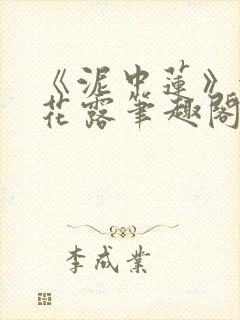 《泥中莲》
花露笔趣阁
李成业